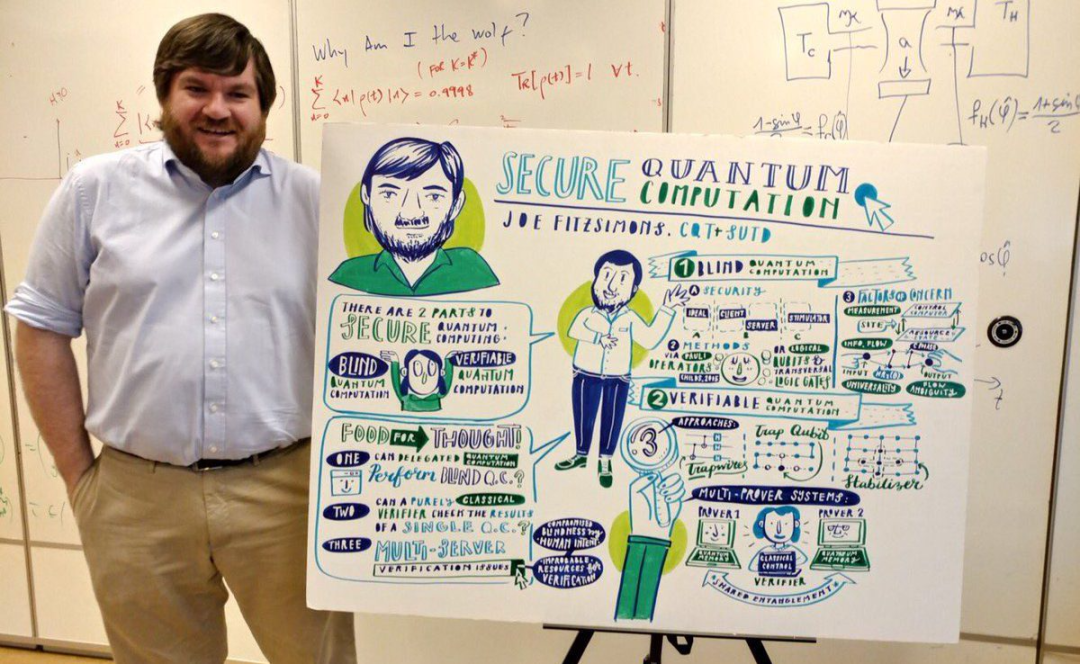 Why Am I the wolf?
(for K=K*)
Tr[ρ(t)]=1 ∀t.
T_C
T_H
a
SECURE QUANTUM
COMPUTATION
JOE FITZSIMONS. CQT+SUTD
THERE ARE 2 PARTS TO
SECURE QUANTUM
COMPUTING.
BLIND
QUANTUM
COMPUTATION
VERIFIABLE
QUANTUM
COMPUTATION
FOOD FOR THOUGHT!
ONE CAN DELEGATED QUANTUM
COMPUTATION
Perform BLIND Q.C.?
TWO CAN A PURELY CLASSICAL
VERIFIER CHECK THE RESULTS
OF A SINGLE Q.C.?
THREE MULTI-SERVER
VERIFICATION ISSUES
COMPROMISED
BLINDNESS by
HUMAN INTENT.
IMPROBABLE
RESOURCES for
VERIFICATION
1 BLIND QUANTUM
COMPUTATION
A SECURITY
IDEAL
CLIENT
SERVER
SIMULATOR
METHODS
VIA PAULI
OPERATORS
CHILDS, 2005
OR LOGICAL
QUBITS &
TRANSVERSAL
LOGIC GATES
3 FACTORS OF CONCERN
MEASUREMENT
CONTROL
COMPUTER
SITE
RESOURCE
INFO, FLOW
INPUT
OUTPUT
UNIVERSALITY
FLOW
AMBIGUITY
2 VERIFIABLE QUANTUM
COMPUTATION
3
APPROACHES:
Trapwires
Trap Qubit
Stabilizer
MULTI-PROVER SYSTEMS:
PROVER 1
PROVER 2
QUANTUM
MEMORY
CLASSICAL
CONTROL
QUANTUM
MEMORY
VERIFIER
SHARED ENTANGLEMENT